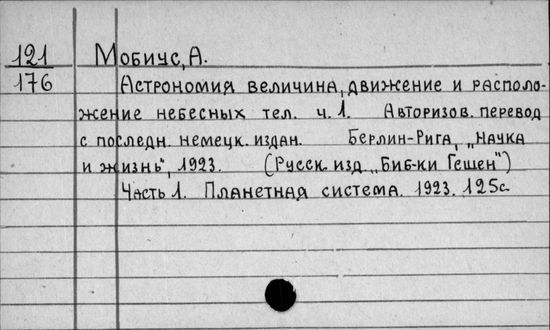 121 Мобиус, А.
176 Астрономия величина, движение и располо-
жение небесных тел. ч. 1. Авторизов. перевод
с последн. немецк. издан. Берлин-Рига, „Наука
и жизнь", 1923. (Русск. изд. „Биб-ки Гешен")
Часть 1. Планетная система. 1923. 125с.